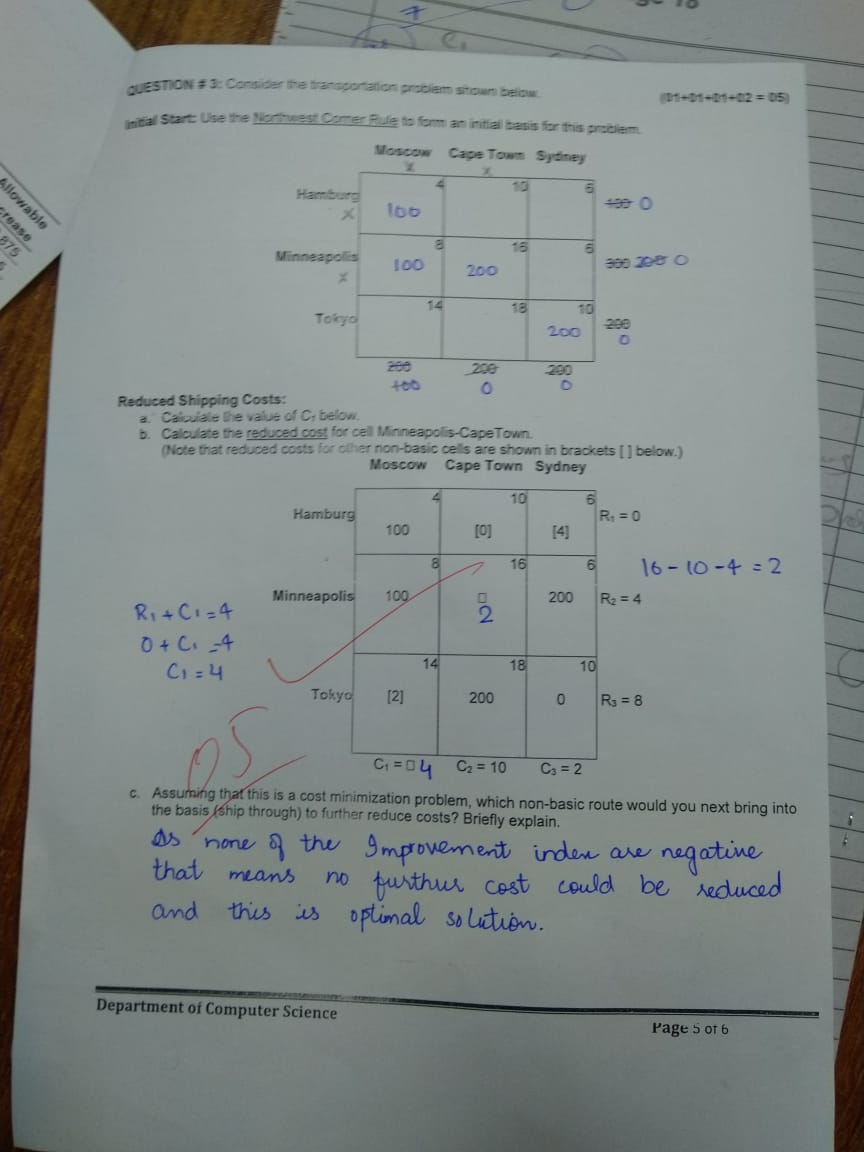 7
C1
Allowable
crease
875
QUESTION # 3: Consider the transportation problem shown below. (01+01+01+02 = 05)
Initial Start: Use the Northwest Corner Rule to form an initial basis for this problem.
Moscow Cape Town Sydney
x x
Hamburg 4 10 6
x 100 100 0
Minneapolis 8 16 6
x 100 200 300 200 0
Tokyo 14 18 10
200 200
0
200 200 200
100 0 0
Reduced Shipping Costs:
a. Calculate the value of C₁ below.
b. Calculate the reduced cost for cell Minneapolis-CapeTown.
(Note that reduced costs for other non-basic cells are shown in brackets [ ] below.)
Moscow Cape Town Sydney
Hamburg 4 10 6 R₁ = 0
100 [0] [4]
8 16 6 16 - 10 - 4 = 2
Minneapolis 100 2 200 R₂ = 4
R1 + C1 = 4
0 + C1 = 4
C1 = 4
14 18 10
Tokyo [2] 200 0 R₃ = 8
C₁ = 4 C₂ = 10 C₃ = 2
05
c. Assuming that this is a cost minimization problem, which non-basic route would you next bring into
the basis (ship through) to further reduce costs? Briefly explain.
As none of the Improvement index are negative
that means no further cost could be reduced
and this is optimal solution.
Department of Computer Science
Page 5 of 6